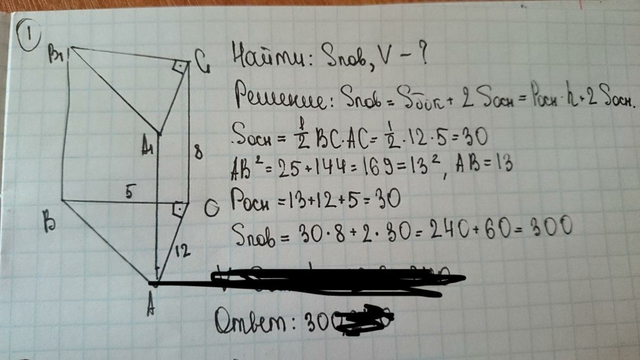 1
Найти: Sпов, V - ?
Решение: Sпов = Sбок + 2 Sосн = Pосн · h + 2 Sосн.
Sосн = 1/2 BC·AC = 1/2 · 12 · 5 = 30
AB² = 25 + 144 = 169 = 13², AB = 13
Pосн = 13 + 12 + 5 = 30
Sпов = 30 · 8 + 2 · 30 = 240 + 60 = 300
Ответ: 300
B₁
C₁
A₁
8
5
B
C
12
A